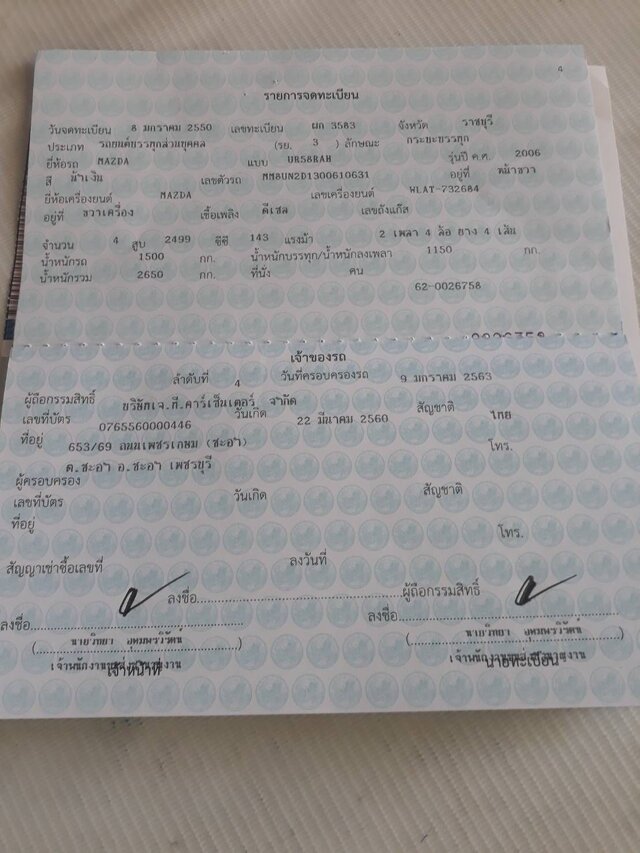 4
รายการจดทะเบียน
วันจดทะเบียน 8 มกราคม 2550 เลขทะเบียน ผก 3583 จังหวัด ราชบุรี
ประเภท รถยนต์บรรทุกส่วนบุคคล (รย. 3 ) ลักษณะ กระบะบรรทุก
ยี่ห้อรถ MAZDA แบบ UR58RAB รุ่นปี ค.ศ. 2006
สี น้ำเงิน เลขตัวรถ MM8UN2D1300610631 อยู่ที่ หน้าขวา
ยี่ห้อเครื่องยนต์ MAZDA เลขเครื่องยนต์ WLAT-732684
อยู่ที่ ขวาเครื่อง เชื้อเพลิง ดีเซล เลขถังแก๊ส
จำนวน 4 สูบ 2499 ซีซี 143 แรงม้า 2 เพลา 4 ล้อ ยาง 4 เส้น
น้ำหนักรถ 1500 กก. น้ำหนักบรรทุก/น้ำหนักลงเพลา 1150 กก.
น้ำหนักรวม 2650 กก. ที่นั่ง คน
62-0026758
เจ้าของรถ
ลำดับที่ 4 วันที่ครอบครองรถ 9 มกราคม 2563
ผู้ถือกรรมสิทธิ์ บริษัทเจ.ที.คาร์เซ็นเตอร์ จำกัด
เลขที่บัตร 0765560000446 วันเกิด 22 มีนาคม 2560 สัญชาติ ไทย
ที่อยู่ 653/69 ถนนเพชรเกษม (ชะอำ) โทร.
ต.ชะอำ อ.ชะอำ เพชรบุรี
ผู้ครอบครอง
เลขที่บัตร วันเกิด สัญชาติ
ที่อยู่ โทร.
สัญญาเช่าซื้อเลขที่ ลงวันที่
ลงชื่อ ผู้ถือกรรมสิทธิ์
ลงชื่อ ลงชื่อ
(นายวิทยา) (นายวิทยา)
เจ้าหน้าที่ นายทะเบียน